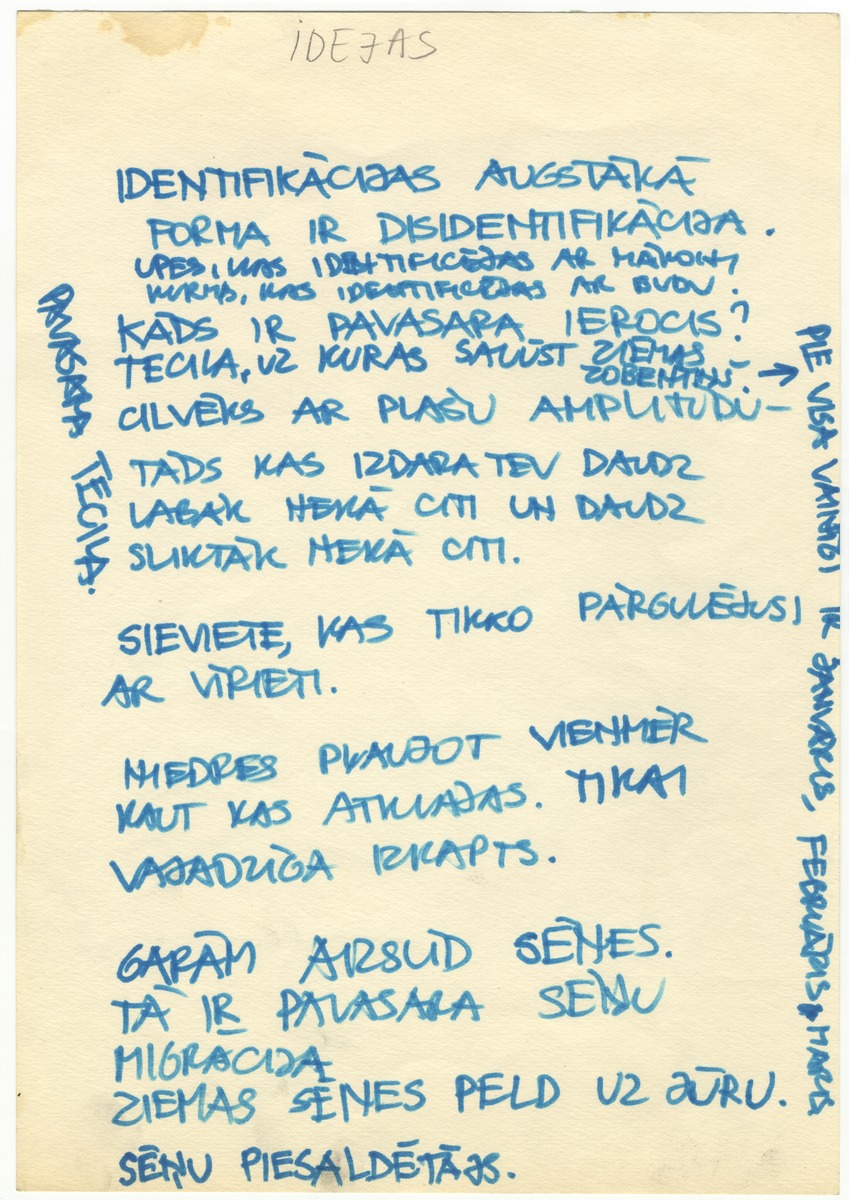 IDEJAS
IDENTIFIKĀCIJAS AUGSTĀKĀ
FORMA IR DISIDENTIFIKĀCIJA.
UPES, KAS IDENTIFICĒJAS AR MĀKOŅI
KURMS, KAS IDENTIFICĒJAS AR BUDU.
KĀDS IR PAVASARA IEROCIS?
TECILA, UZ KURAS SALŪST ZIEMAS –
ZOBENTIŅŠ.
CILVĒKS AR PLAŠU AMPLITŪDU –
TĀDS KAS IZDARA TEV DAUDZ
LABĀK NEKĀ CITI UN DAUDZ
SLIKTĀK NEKĀ CITI.
SIEVIETE, KAS TIKKO PĀRGULĒJUSI
AR VĪRIETI.
NIEDRES PĻAUJOT VIENMĒR
KAUT KAS ATKLĀJAS. TIKAI
VAJADZĪGA IZKAPTS.
GARĀM AIZSLĪD SĒNES.
TĀ IR PAVASARA SĒŅU
MIGRĀCIJA
ZIEMAS SĒNES PELD UZ JŪRU.
SĒŅU PIESALDĒTĀJS.
PAVASARA TĒCILA.
→ PIE VISA VAINĪGI IR JANVĀRIS, FEBRUĀRIS, MARTS